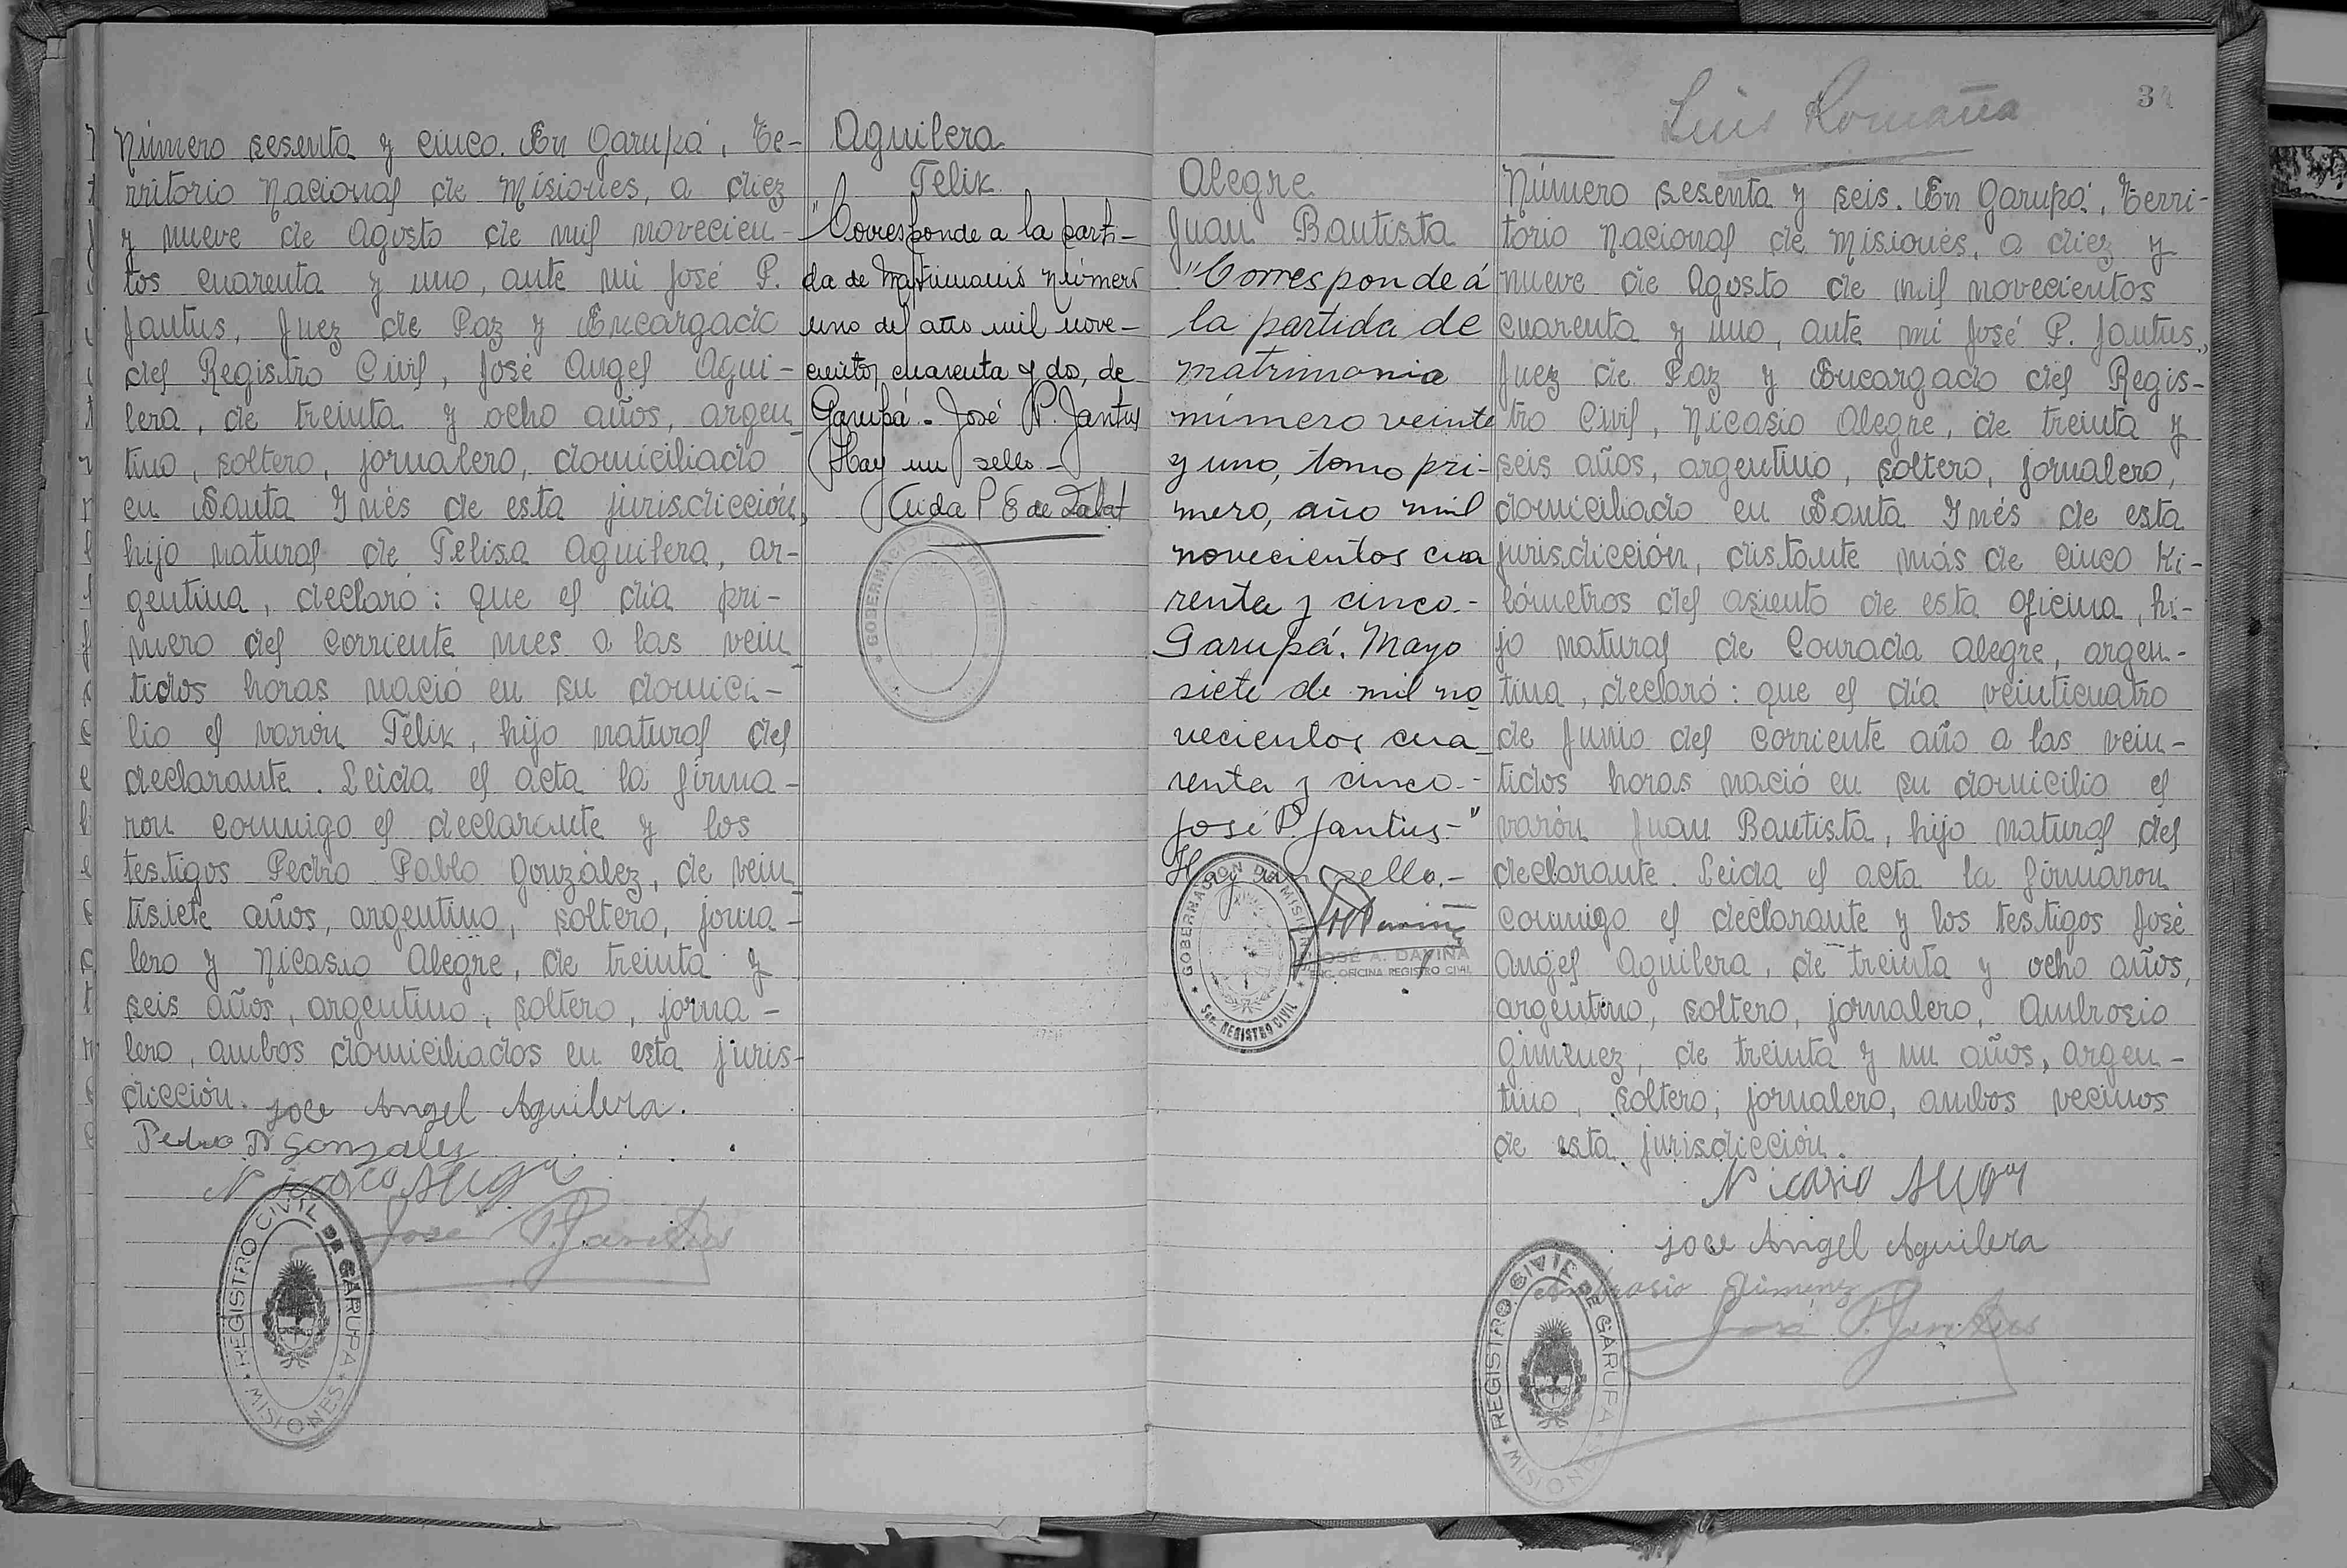 Número sesenta y cinco. En Garupá, Te-
rritorio Nacional de Misiones, a diez
y nueve de Agosto de mil novecien-
tos cuarenta y uno, ante mi José P.
Jantus, Juez de Paz y Encargado
del Registro Civil, José Angel Agui-
lera, de treinta y ocho años, argen_
tino, soltero, jornalero, domiciliado
en Santa Inés de esta jurisdicción,
hijo natural de Felisa Aguilera, ar-
gentina, declaró: que el día pri-
mero del corriente mes a las vein_
tidos horas nació en su domici-
lio el varón Félix, hijo natural del
declarante. Leida el acta la firma-
ron conmigo el declarante y los
testigos Pedro Pablo González, de vein_
tisiete años, argentino, soltero, jorna-
lero y Nicasio Alegre, de treinta y
seis años, argentino, soltero, jorna-
lero, ambos domiciliados en esta juris-
dicción.
Joce Angel Aguilera.
Pedro P Gonzalez
Nicasio Alegre
José P. Jantus
REGISTRO CIVIL DE GARUPA
* MISIONES *
Aguilera
Felix
"Corresponde a la parti-
da de Matrimonio número
uno del año mil nove-
cientos cuarenta y dos, de
Garupá - José P. Jantus
Hay un sello -
GOBERNACION DE MISIONES
Alegre
Juan Bautista
"Corresponde á
la partida de
matrimonio
número veinte
y uno, tomo pri-
mero, año mil
novecientos cua
renta y cinco.-
Garupá. Mayo
siete de mil no
vecientos cua_
renta y cinco.-
José P. Jantus-"
Hay un sello.-
GOBERNACION DE MISIONES
* Sec. REGISTRO CIVIL *
JOSÉ A. DAVIÑA
ENC. OFICINA REGISTRO CIVIL
Luis Romaña
Número sesenta y seis. En Garupá, Terri-
torio Nacional de Misiones, a diez y
nueve de Agosto de mil novecientos
cuarenta y uno, ante mí José P. Jantus,
Juez de Paz y Encargado del Regis-
tro Civil, Nicasio Alegre, de treinta y
seis años, argentino, soltero, jornalero,
domiciliado en Santa Inés de esta
jurisdicción, distante más de cinco ki-
lómetros del asiento de esta oficina, hi-
jo natural de Conrada Alegre, argen-
tina, declaró: que el día veinticuatro
de Junio del corriente año a las vein-
tidos horas nació en su domicilio el
varón Juan Bautista, hijo natural del
declarante. Leida el acta la firmaron
conmigo el declarante y los testigos José
Angel Aguilera, de treinta y ocho años,
argentino, soltero, jornalero, Ambrosio
Giménez, de treinta y un años, argen-
tino, soltero, jornalero, ambos vecinos
de esta jurisdicción.
Nicasio Alegre
Joce Angel Aguilera
Ambrosio Gimenez
José P. Jantus
REGISTRO CIVIL DE GARUPA
* MISIONES *